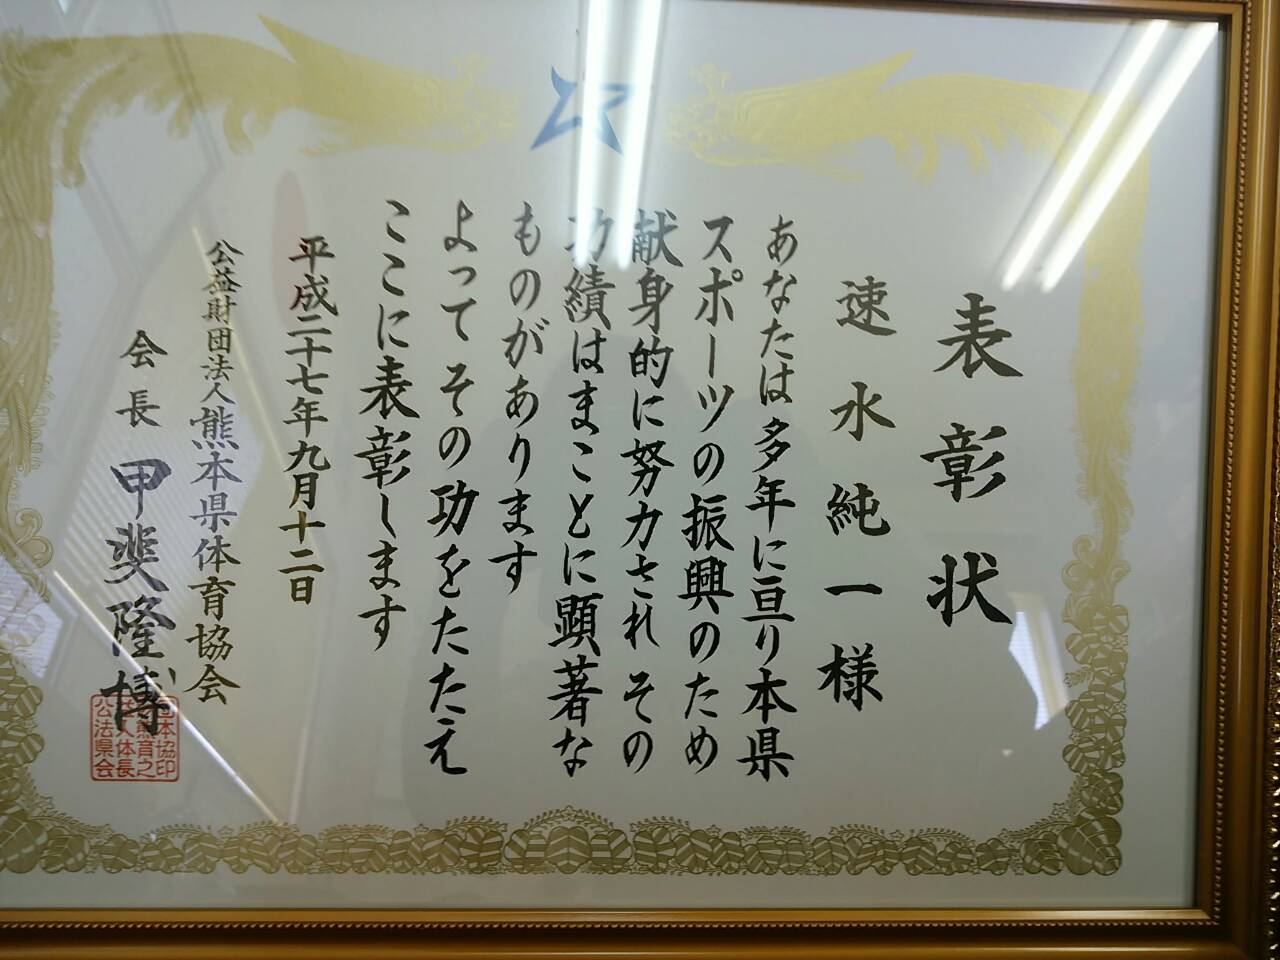 表彰状
速水純一様
あなたは多年に亘り本県
スポーツの振興のため
献身的に努力されその
功績はまことに顕著な
ものがあります
よってその功をたたえ
ここに表彰します
平成二十七年九月十二日
公益財団法人熊本県体育協会
会長 甲斐隆博